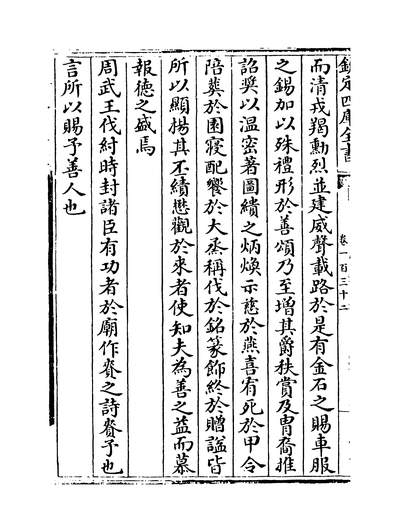 欽定四庫全書
卷一百三十二
而清戎羯勳烈並建威聲載路於是有金石之賜車服
之錫加以殊禮形於善頌乃至增其爵秩賞及胄裔推
詔奨以溫密著圖繢之炳煥示慈於燕喜宥死於甲令
陪葬於園寢配饗於大烝稱伐於銘篆飾終於贈謚皆
所以顯揚其丕績懋觀於來者使知夫為善之益而慕
報德之盛焉
周武王伐紂時封諸臣有功者於廟作賚之詩賚予也
言所以賜予善人也